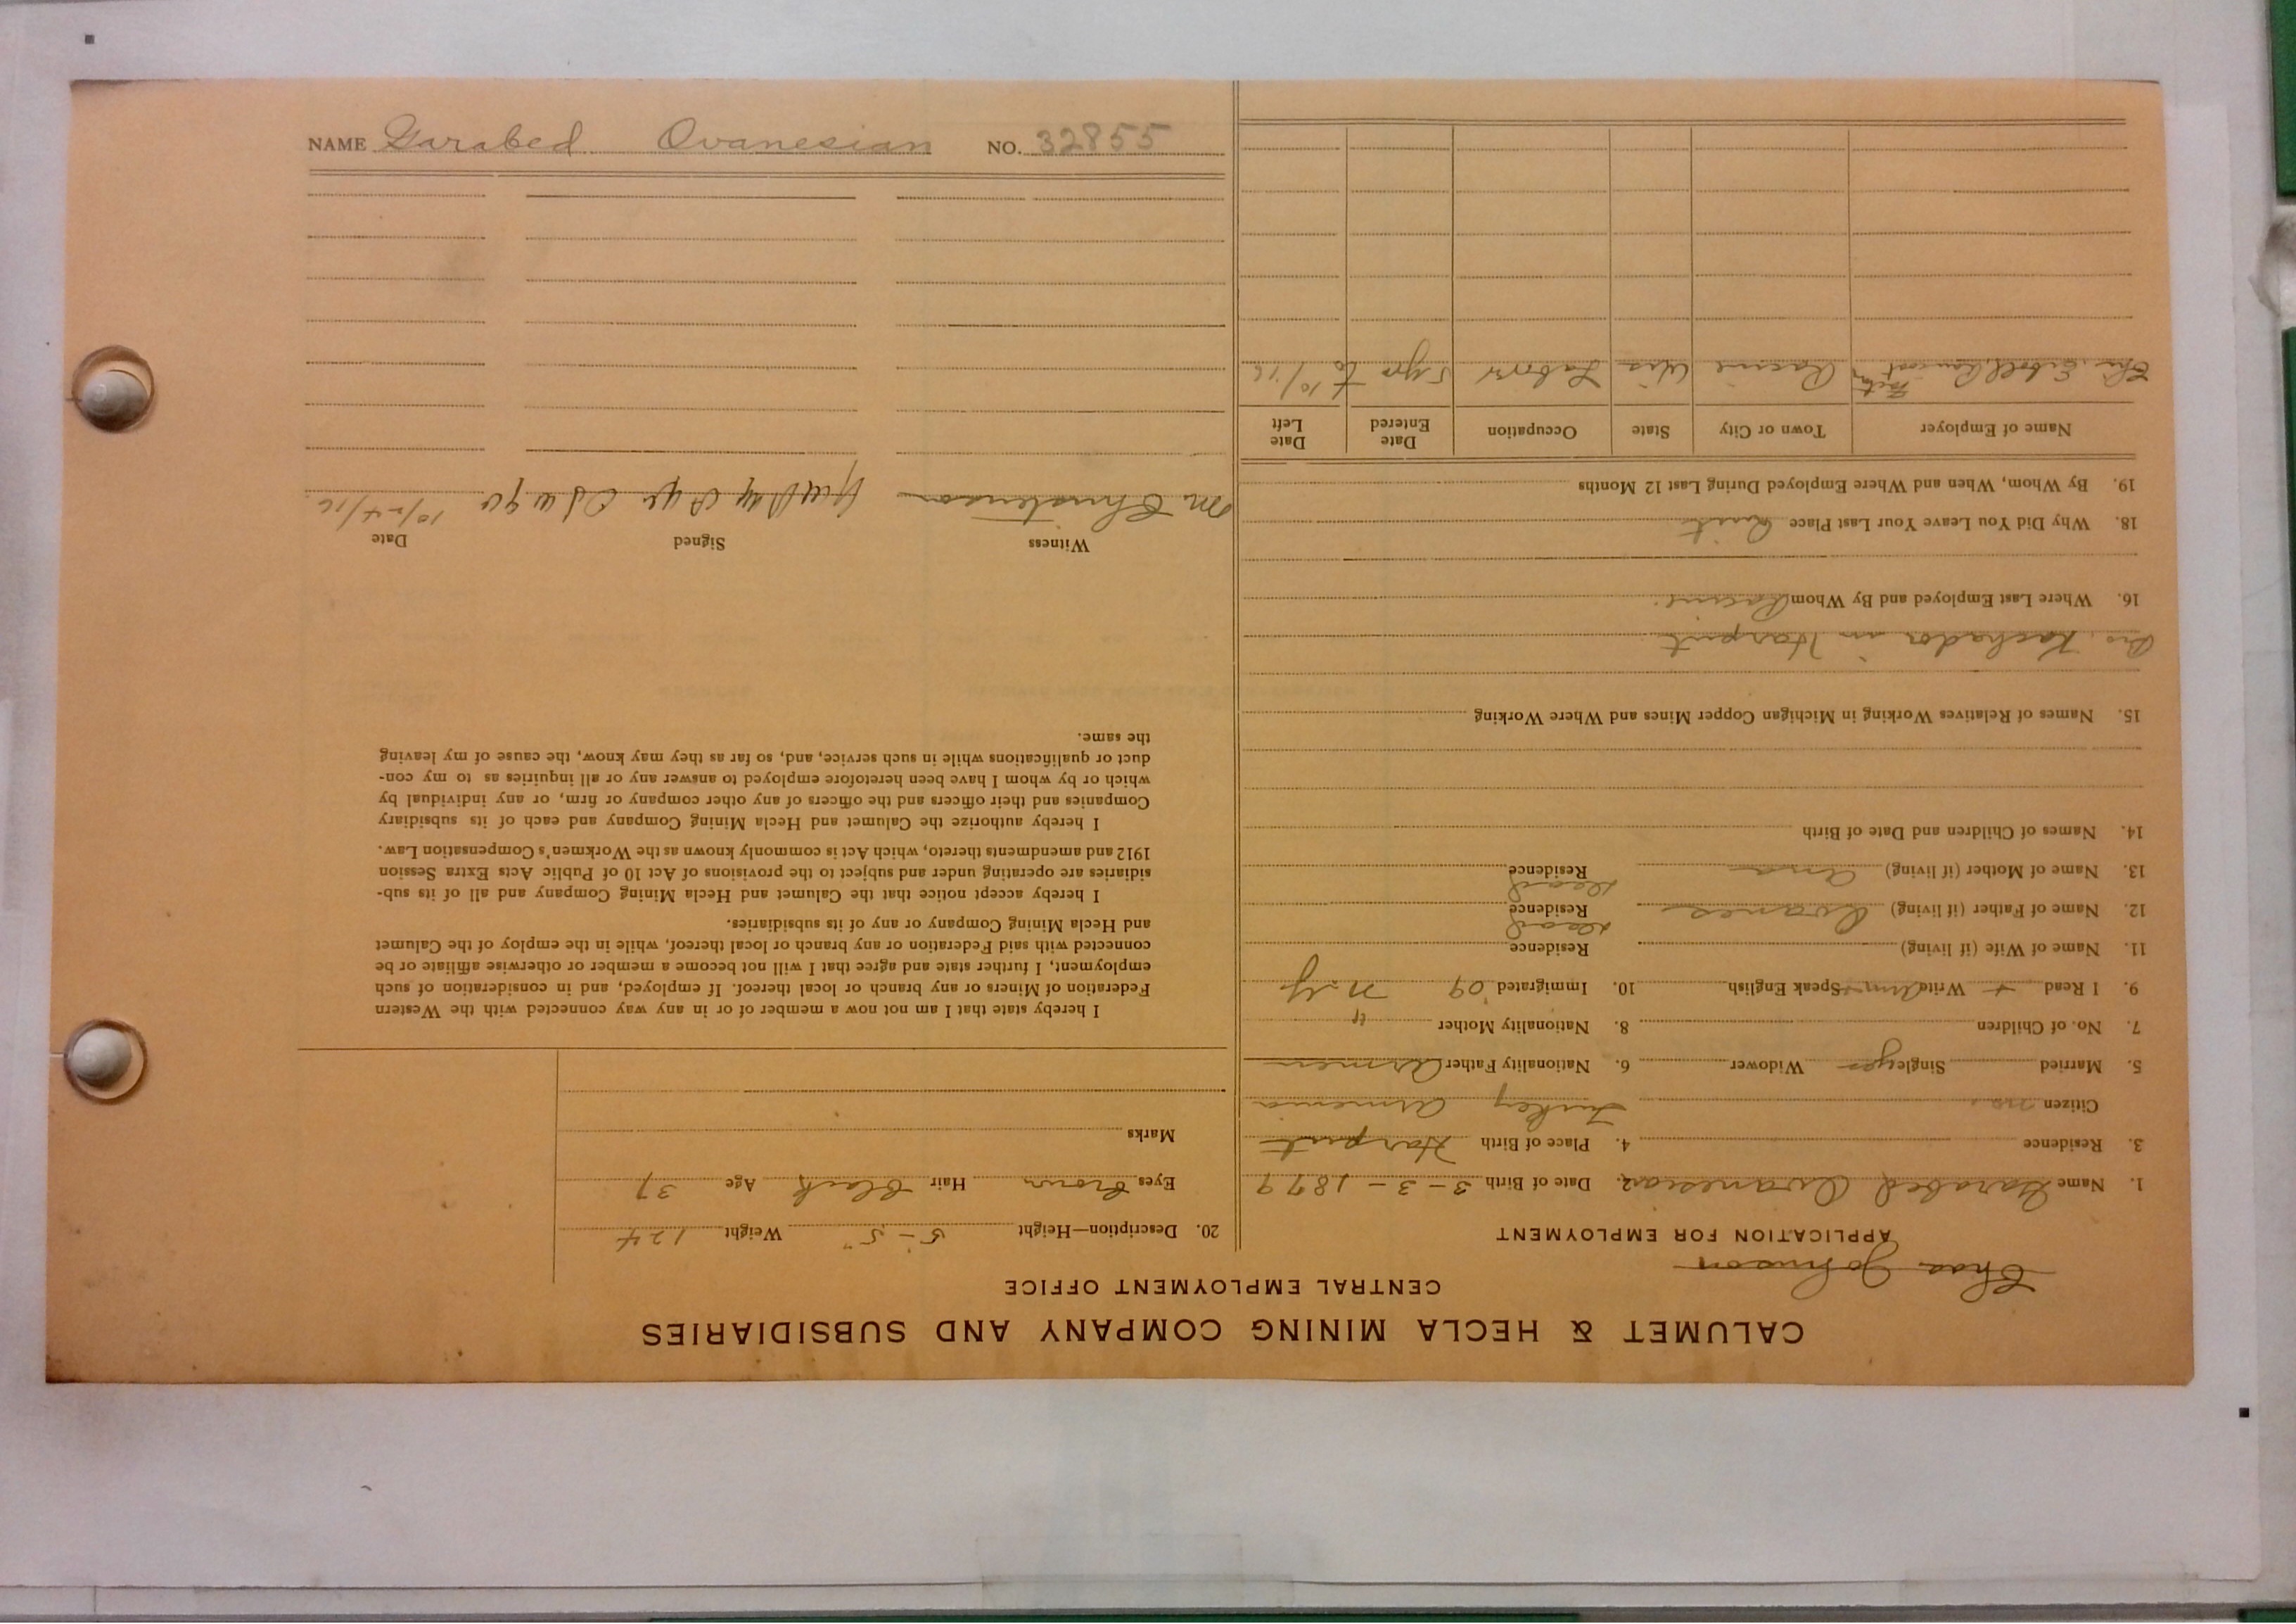 NAME Garabed Ovanesian NO. 32855
CALUMET & HECLA MINING COMPANY AND SUBSIDIARIES
CENTRAL EMPLOYMENT OFFICE
Chas. Johnson
APPLICATION FOR EMPLOYMENT
1. Name Garabed Ovanesian 2. Date of Birth 3-3-1879
3. Residence 4. Place of Birth Harput
Citizen no. Turkey Armenia
5. Married Single yes Widower 6. Nationality Father Armen
7. No. of Children 8. Nationality Mother "
9. I Read + Write Arm + Speak English 10. Immigrated 09 N.Y.
11. Name of Wife (if living) Residence
12. Name of Father (if living) Ovanes Residence dead
13. Name of Mother (if living) Ana Residence dead
14. Names of Children and Date of Birth
15. Names of Relatives Working in Michigan Copper Mines and Where Working
Bro. Kachador in Harput
16. Where Last Employed and By Whom Racine.
18. Why Did You Leave Your Last Place Quit
19. By Whom, When and Where Employed During Last 12 Months
Name of Employer Town or City State Occupation Date Entered Date Left
Raincoat Racine Wis Labor 5 yrs to 10/16
20. Description—Height 5-5" Weight 124
Eyes Brown Hair Black Age 37
Marks
I hereby state that I am not now a member of or in any way connected with the Western
Federation of Miners or any branch or local thereof. If employed, and in consideration of such
employment, I further state and agree that I will not become a member or otherwise affiliate or be
connected with said Federation or any branch or local thereof, while in the employ of the Calumet
and Hecla Mining Company or any of its subsidiaries.
I hereby accept notice that the Calumet and Hecla Mining Company and all of its sub-
sidiaries are operating under and subject to the provisions of Act 10 of Public Acts Extra Session
1912 and amendments thereto, which Act is commonly known as the Workmen's Compensation Law.
I hereby authorize the Calumet and Hecla Mining Company and each of its subsidiary
Companies and their officers and the officers of any other company or firm, or any individual by
which or by whom I have been heretofore employed to answer any or all inquiries as to my con-
duct or qualifications while in such service, and, so far as they may know, the cause of my leaving
the same.
Witness Signed Date
M. Christenson 10/24/16